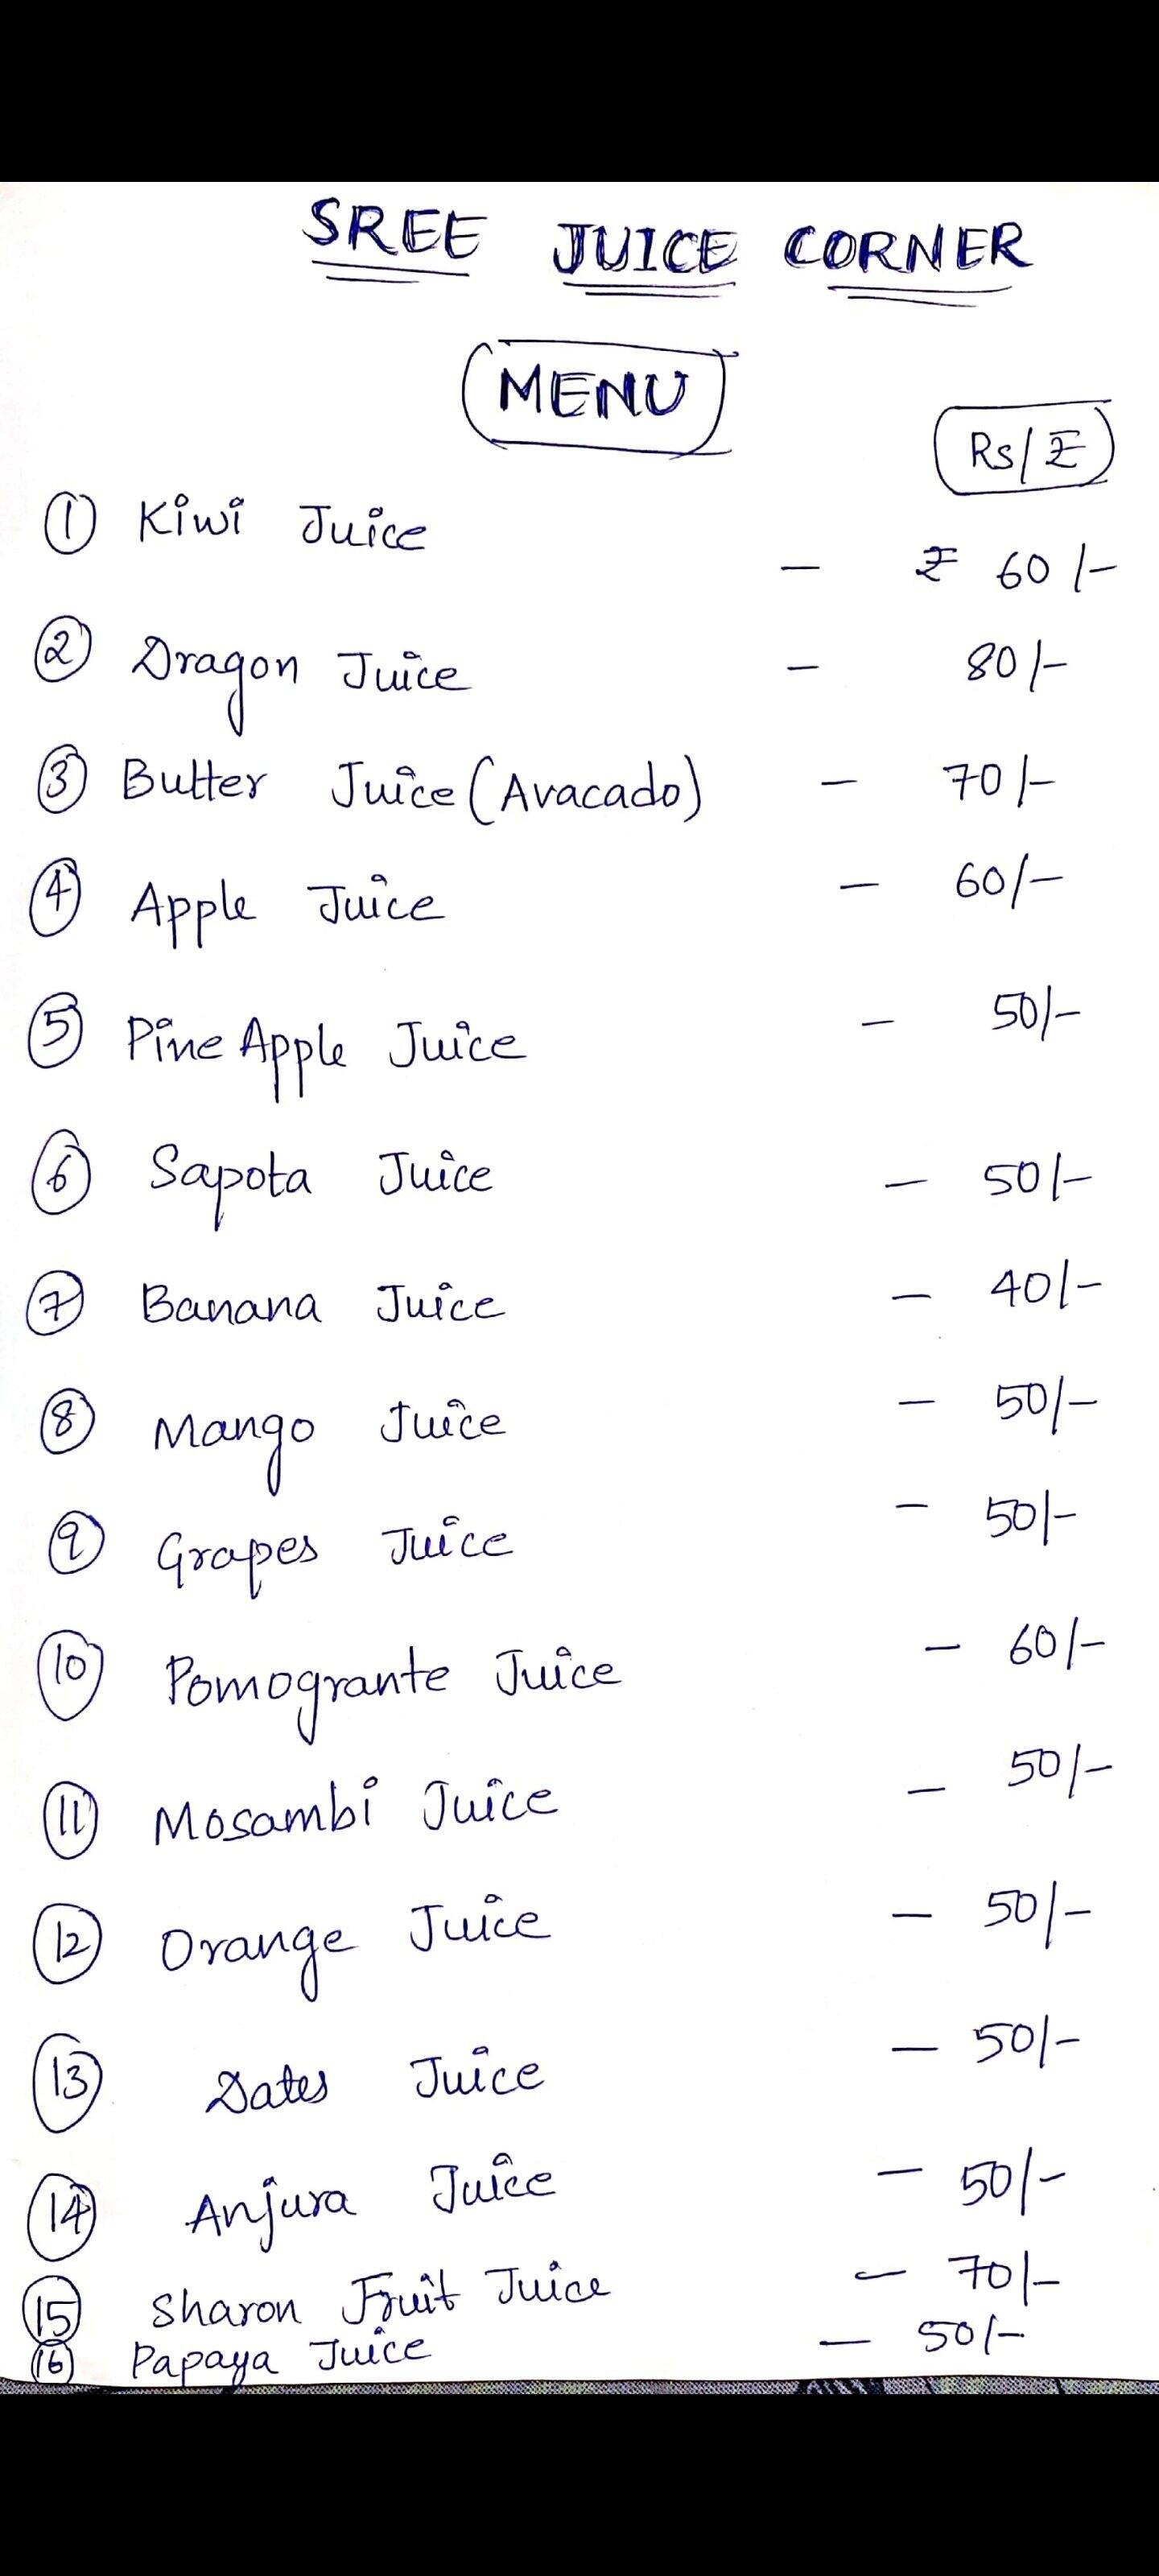 SREE JUICE CORNER
MENU
Rs/₹
1 Kiwi Juice - ₹ 60/-
2 Dragon Juice - 80/-
3 Butter Juice (Avacado) - 70/-
4 Apple Juice - 60/-
5 Pine Apple Juice - 50/-
6 Sapota Juice - 50/-
7 Banana Juice - 40/-
8 Mango Juice - 50/-
9 Grapes Juice - 50/-
10 Pomogrante Juice - 60/-
11 Mosambi Juice - 50/-
12 Orange Juice - 50/-
13 Dates Juice - 50/-
14 Anjura Juice - 50/-
15 Sharon Fruit Juice - 70/-
16 Papaya Juice - 50/-